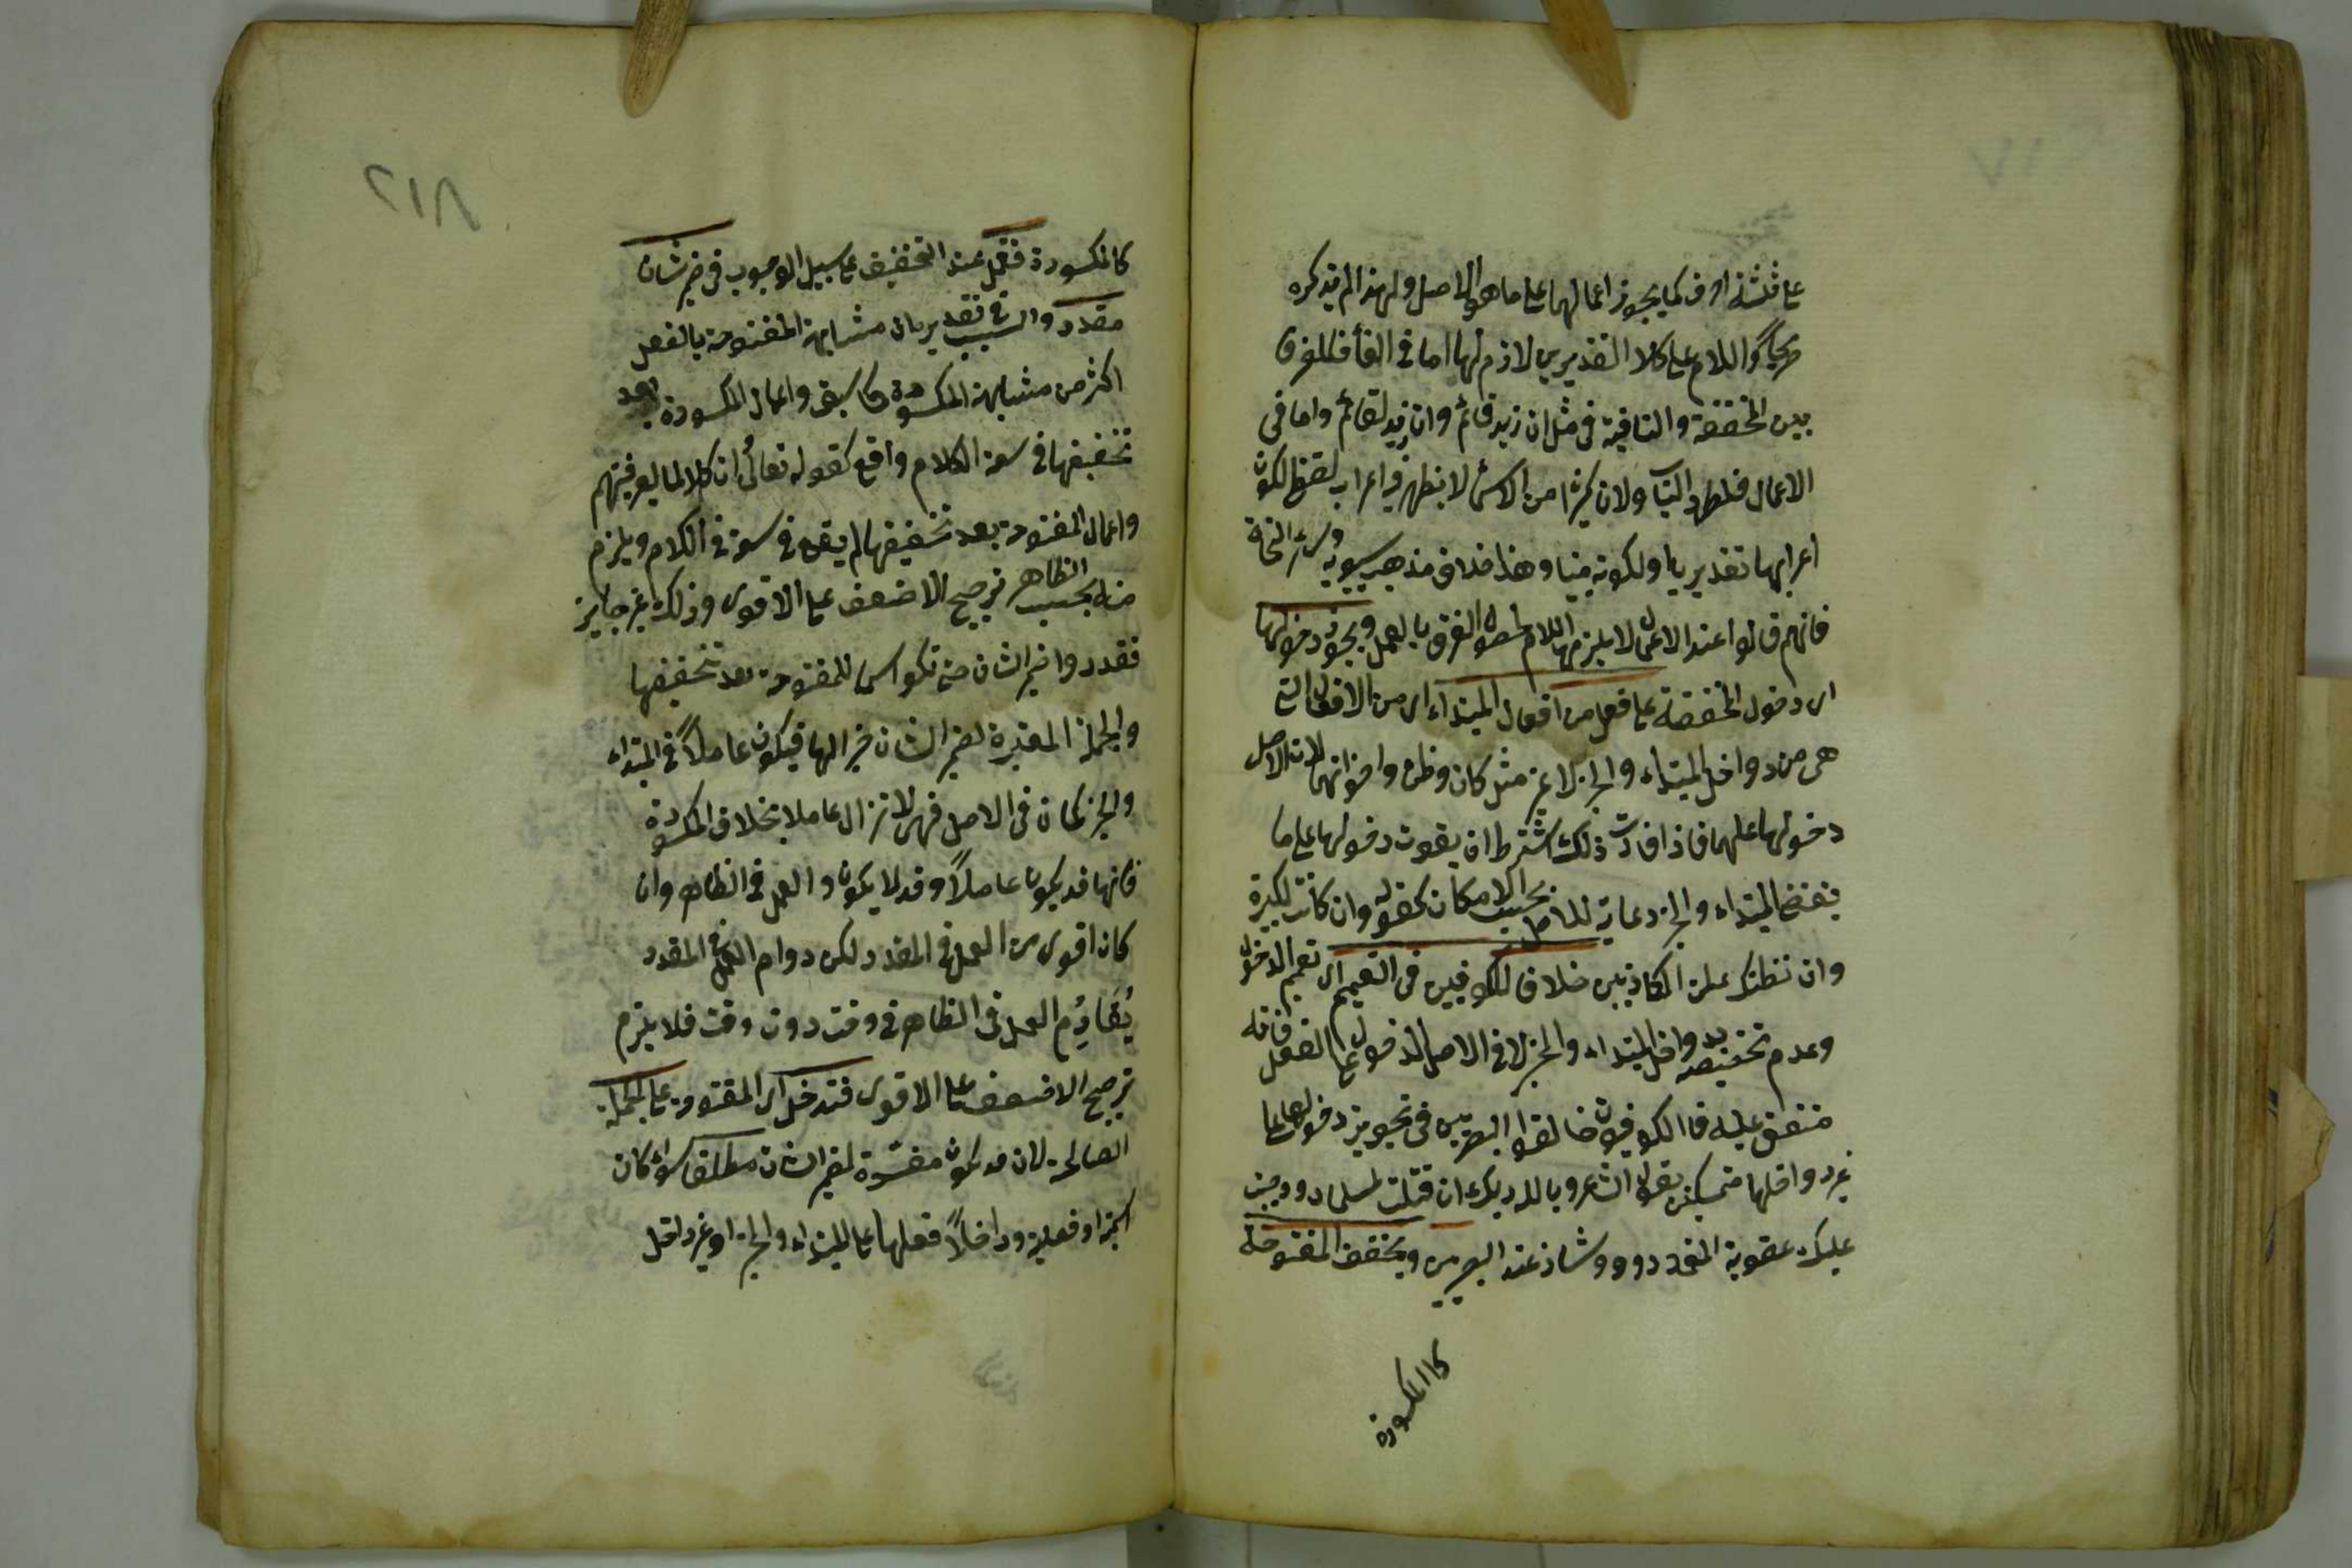 على ثلثة احرف كما يجوز اعمالها على ما هو الاصل ولهذا لم يذكره
صريحا واللام على كلا التقديرين لازم لها اما في الغأ فللفرق
بين المخففة والنافية في مثل ان زيد قائم وان زيد لقائم واما في
الاعمال فلطرد الباب ولان كثيرا من الاسمأ لا يظهر فيه اعراب لفظى لكون
اعرابها تقديريا او لكونه مبنيا وهذا خلاف مذهب سيبويه وسائر النحاة
فانهم قالوا عند الاعمال لا يلزمها اللام لحصول الفرق بالعمل ويجوز دخولها
اى دخول المخففة على فعل من افعال المبتداء اى من الافعال التى
هي من دواخل المبتداء والخبر لا غير مثل كان وظن واخواتهما لان الاصل
دخولها عليهما فاذا فات ذلك اشترط ان يفوت دخولها على ما
يقتضى المبتداء والخبر رعاية للاصل بحسب الامكان كقوله وان كانت لكبيرة
وان نظنك لمن الكاذبين خلافا للكوفيين في التعميم اى تعميم الدخول
وعدم تخصيصه بدواخل المبتداء والخبر لا في الاصل الدخول على الفعل فانه
متفق عليه فالكوفيون خالفوا البصريين في تجويز دخولها على
غير دواخلها متمسكين بقول الشاعر وبالله ربك ان قتلت لمسلما ووجبت
عليك عقوبة المتعمد وهو شاذ عند البصريين ويخفف المفتوحة
كالمكسورة
٢١٨
كالمكسورة فتعمل عند التخفيف على سبيل الوجوب في ضمير شان
مقدر والسبب في تقديره ان مشابهة المفتوحة بالفعل
اكثر من مشابهة المكسورة كما سبق واعمال المكسورة بعد
تخفيفها في سعة الكلام واقع كقوله تعالى ان كلا لما ليوفينهم
واعمال المفتوحة بعد تخفيفها لم يقع في سعة في الكلام ويلزم
منه بحسب الظاهر ترجيح الاضعف على الاقوى وذلك غير جايز
فقدروا ضمير الشان حتى تكون اسما للمفتوحة بعد تخفيفها
والجملة المفسرة لضمير الشان خبرا لها فيكون عاملاً في المبتداء
والخبر كما كان في الاصل فهى لا تزال عاملا بخلاف المكسورة
فانها قد يكون عاملاً وقد لا يكون والعمل في الظاهر وان
كان اقوى من العمل في المقدر لكن دوام العمل في المقدر
يُقَاوِم العمل في الظاهر في وقت دون وقت فلا يلزم
ترجيح الاضعف على الاقوى فتدخل اى المفتوحة على الجملة
الصالحة لان يكون مفسّرة لضمير الشان مطلقا سواء كان
اسمية او فعلية وداخلاً فعلها على المبتداء والخبر او غير داخل